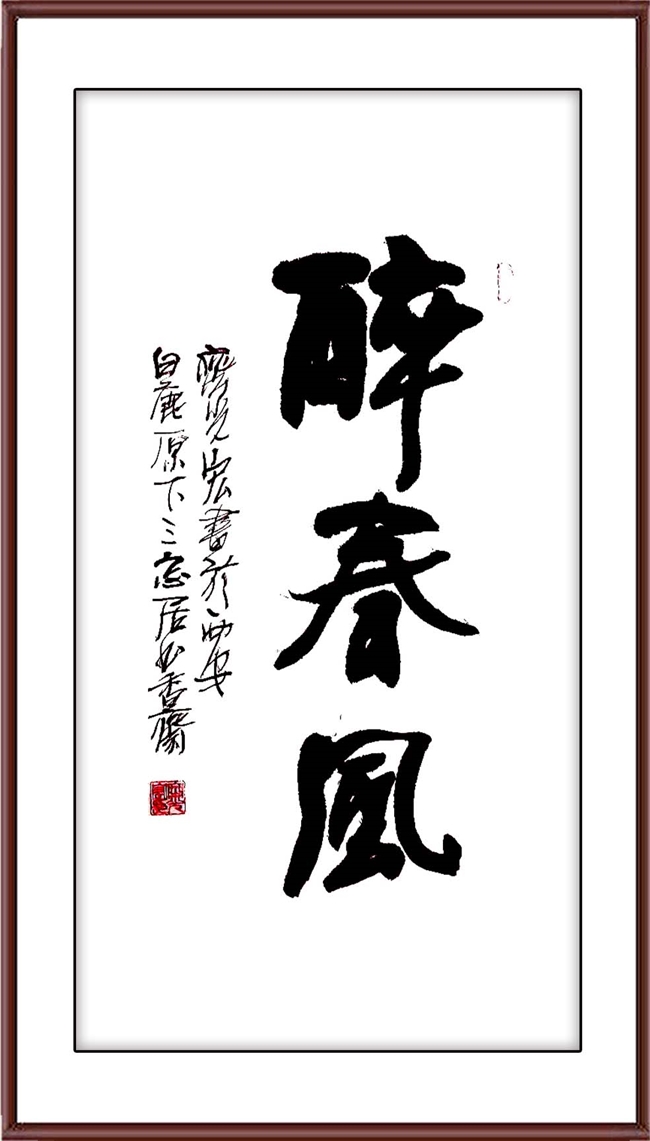 醉春風
宏書於西安
白鹿原下三忘居書香齋